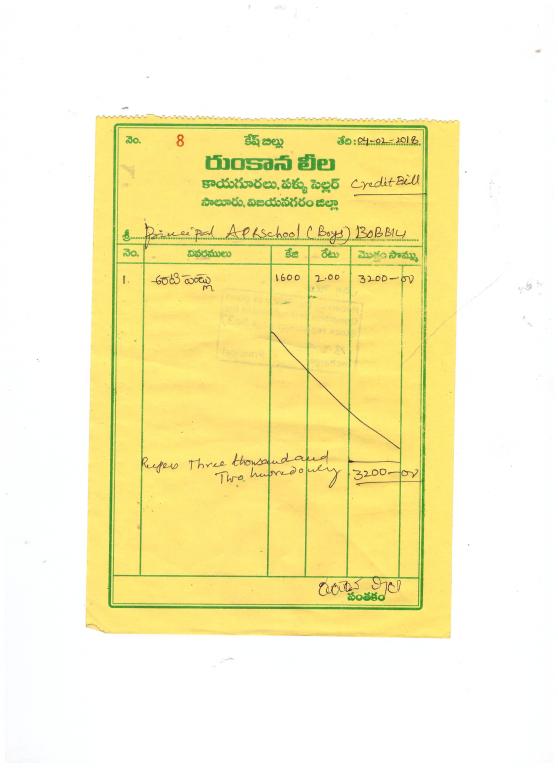 నెం. 8 కేష్ బిల్లు తేది: 04-02-2018
రుంకాన లీల
కాయగూరలు, పళ్ళు సెల్లర్ Credit Bill
సాలూరు, విజయనగరం జిల్లా
శ్రీ Principal A P R School (Boys) BOBBILI
నెం. వివరములు కేజి రేటు మొత్తం సొమ్ము
1. అరటి పండ్లు 1600 2.00 3200-00
Rupees Three thousand and
Two hundred only 3200-00
రుంకాన లీల
సంతకం